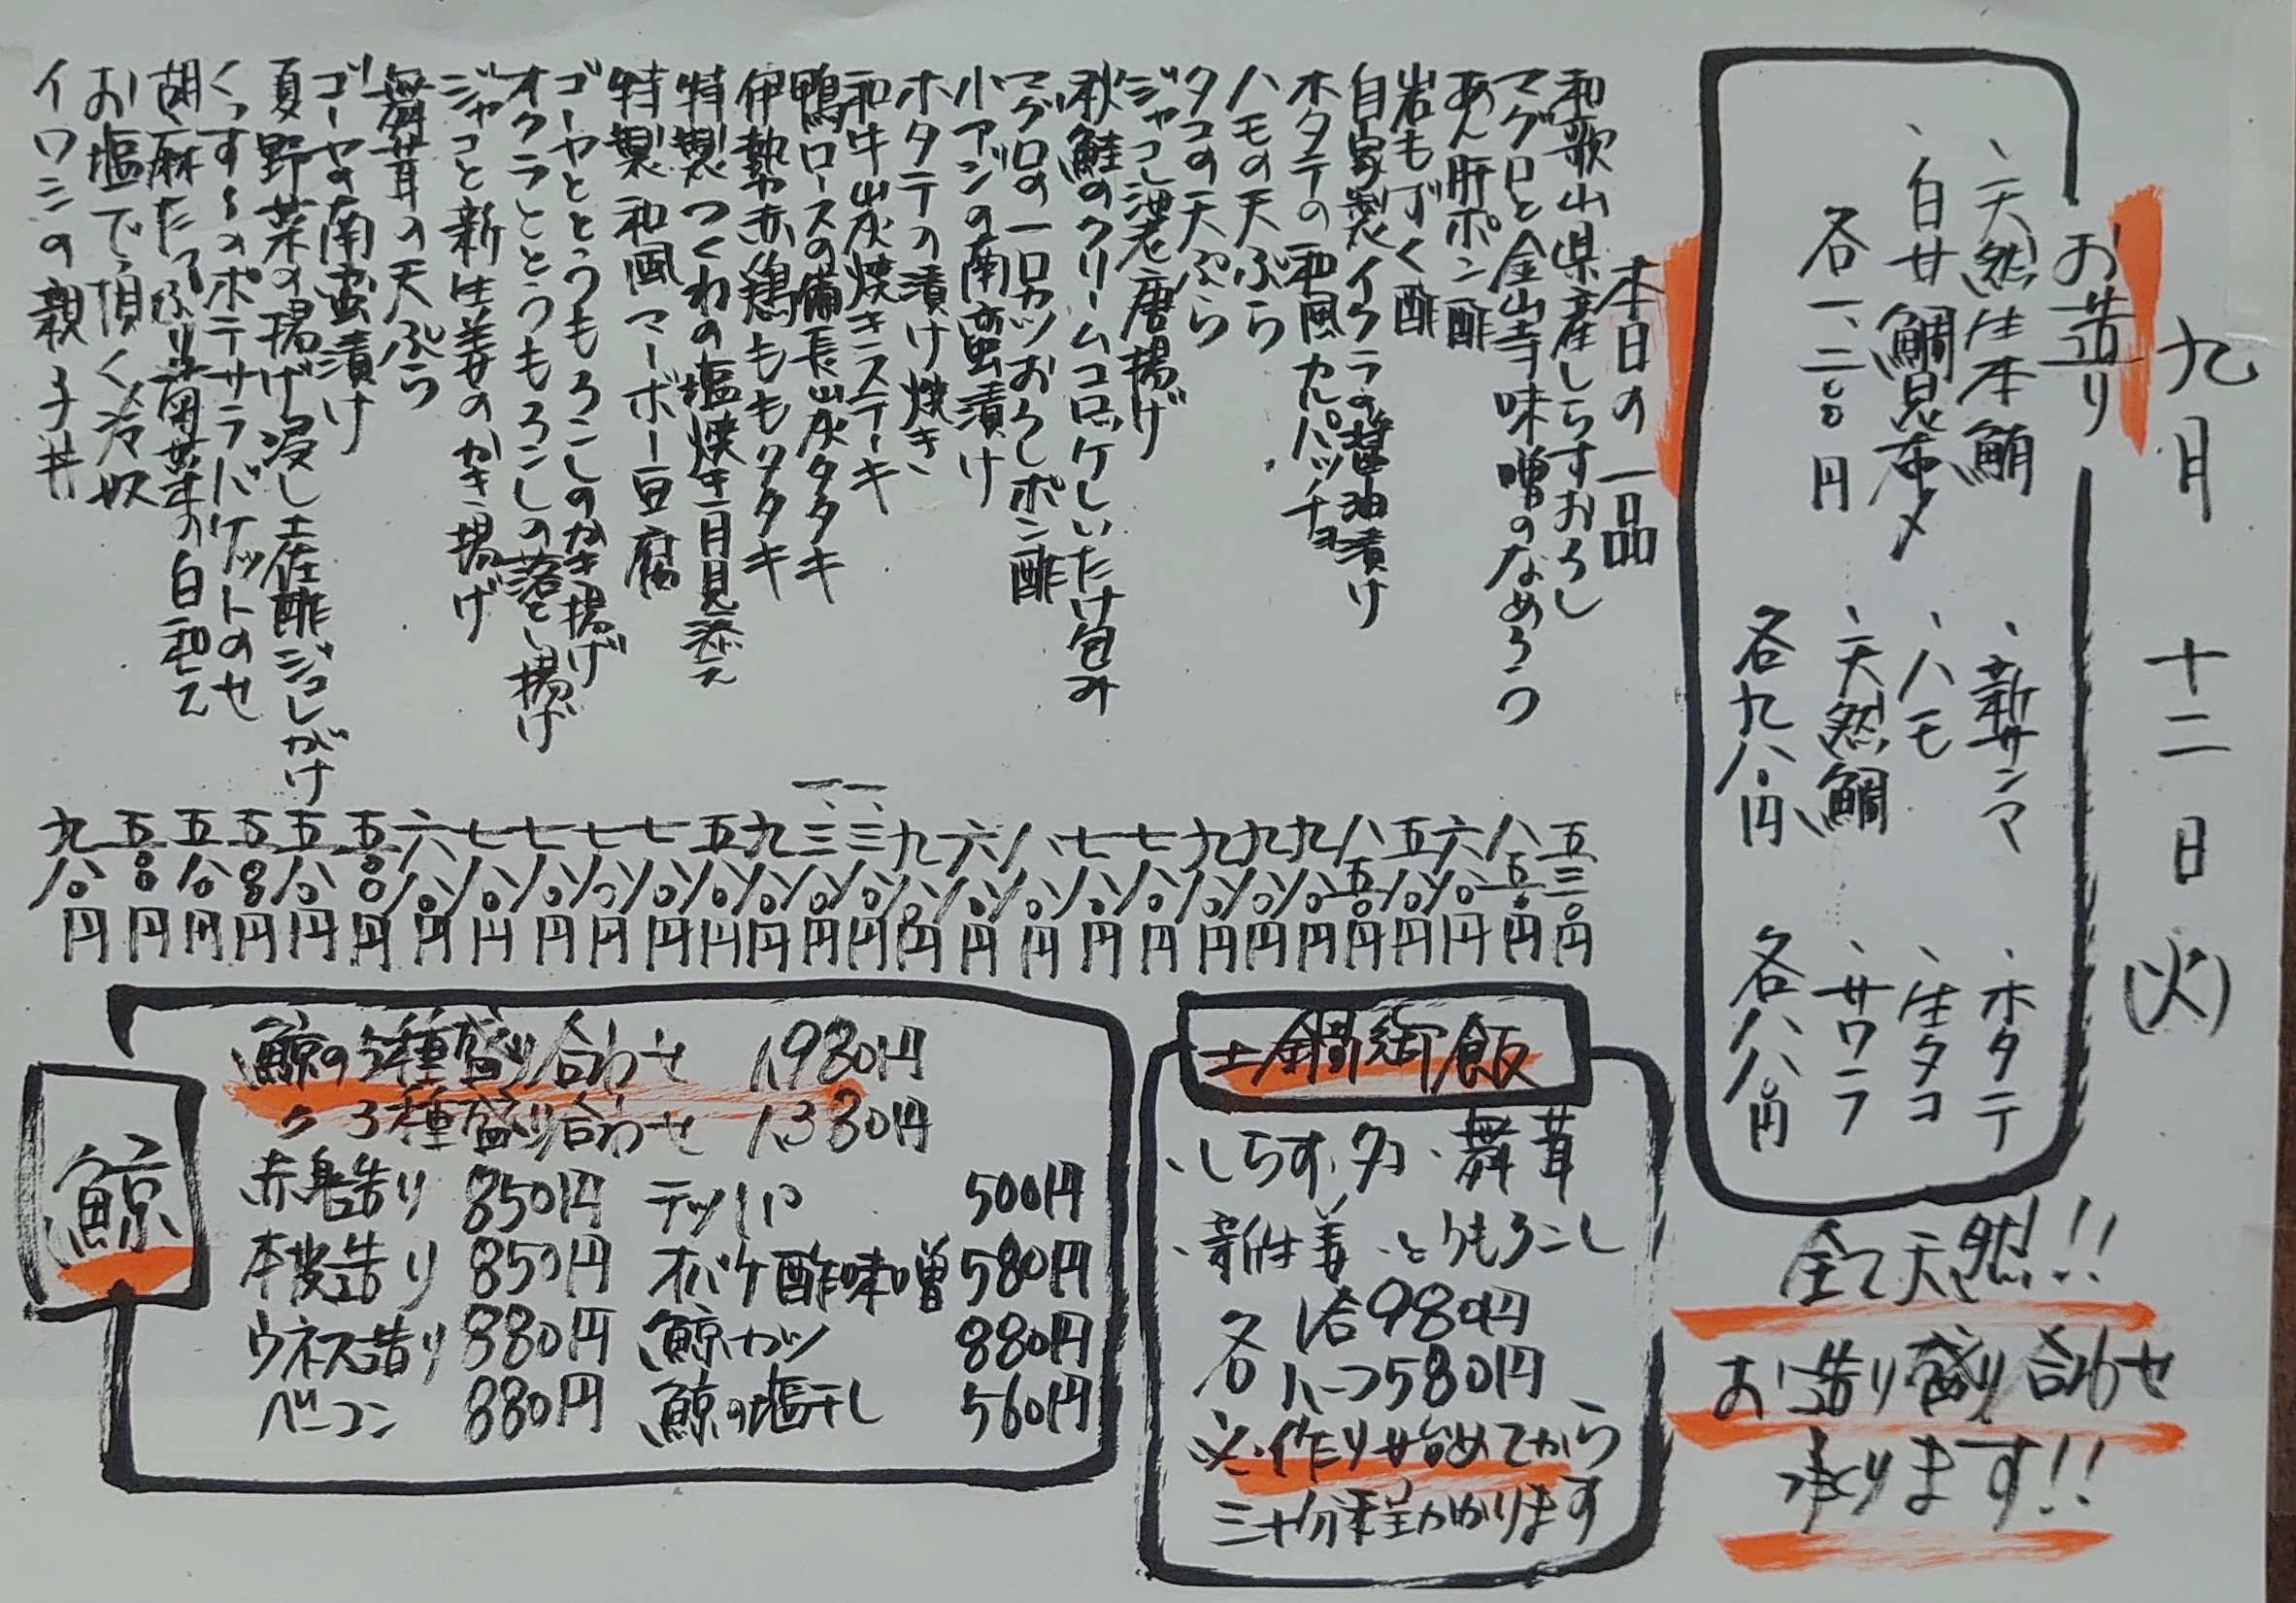 九月 十二日(火)
お造り
、天然生本鮪
、白甘鯛昆布〆
各一、二〇〇円
、新サンマ
、ハモ
、天然鯛
各九八〇円
、ホタテ
、生タコ
、サワラ
各八八〇円
全て天然!!
お造り盛り合わせ
承ります!!
本日の一品
和歌山県産しらすおろし 五三〇円
マグロと金山寺味噌のなめろう 八五〇円
あん肝ポン酢 六八〇円
岩もずく酢 五八〇円
自家製イクラの醤油漬け 八五〇円
ホタテの和風カルパッチョ 九八〇円
ハモの天ぷら 九八〇円
タコの天ぷら 九八〇円
唐揚げ 七八〇円
秋鮭のクリームコロッケしいたけ包み 七八〇円
マグロの一口カツおろしポン酢 八八〇円
小アジの南蛮漬け 六八〇円
ホタテの漬け焼き 九八〇円
和牛炭焼きステーキ 一、三八〇円
鴨ロースの備長炭タタキ 一、三八〇円
伊勢赤鶏ももタタキ 九八〇円
特製つくねの塩焼き 月見添え 五八〇円
特製和風マーボー豆腐 七八〇円
ゴーヤととうもろこしのかき揚げ 七八〇円
オクラととうもろこしの落とし揚げ 七八〇円
ジャコと新生姜のかき揚げ 七八〇円
舞茸の天ぷら 六八〇円
ゴーヤの南蛮漬け 五〇〇円
夏野菜の揚げ浸し土佐酢ジュレがけ 五八〇円
ポテサラバゲットのせ 五〇〇円
胡麻たっぷり 菜の白和え 五八〇円
お塩で頂く冷奴 五〇〇円
イワシの親子丼 九八〇円
土鍋御飯
、しらす、タコ、舞茸
、新生姜、とうもろこし
各1合980円
各ハーフ580円
※作り始めてから
三十分程かかります
鯨
鯨の5種盛り合わせ 1,980円
〃3種盛り合わせ 1,380円
赤身造り 850円 テッパヤ 500円
本皮造り 850円 オバケ酢味噌 580円
ウネス造り 880円 鯨カツ 880円
ベーコン 880円 鯨の塩干し 560円